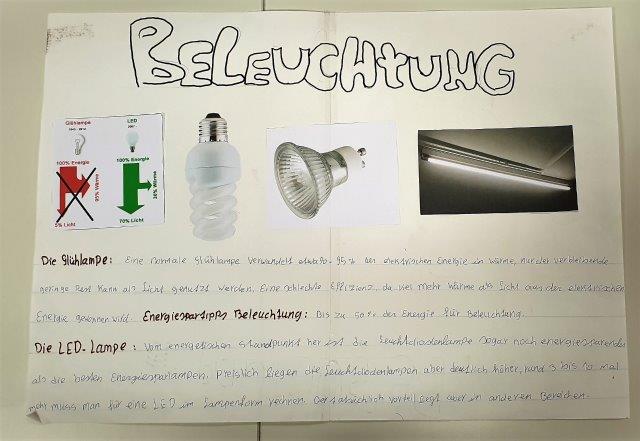 BELEUCHTUNG
Glühlampe
LED
100% Energie
100% Energie
95% Wärme
30% Wärme
5% Licht
70% Licht
Die Glühlampe: Eine normale Glühlampe verwandelt 95% der elektrischen Energie in Wärme, nur der verbleibende
geringe Rest kann als Licht genutzt werden. Eine schlechte Effizienz, da viel mehr Wärme als Licht aus der elektrischen
Energie gewonnen wird. Energiespartipps Beleuchtung: Bis zu 50% der Energie für Beleuchtung.
Die LED-Lampe: Vom energetischen Standpunkt her ist die Leuchtdiodenlampe sogar noch energiesparender
als die besten Energiesparlampen. Preislich liegen die Leuchtdiodenlampen aber deutlich höher, rund 3 bis 10 mal
mehr muss man für eine LED in Lampenform rechnen. Der tatsächlich Vorteil liegt aber in anderen Bereichen.